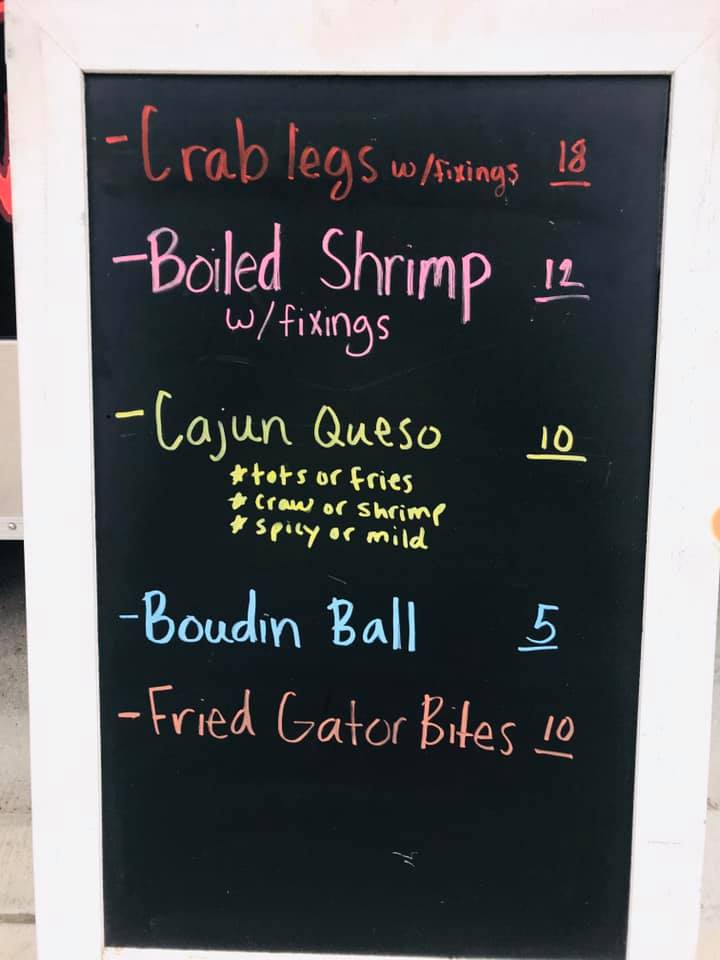 - Crab legs w/fixings 18
- Boiled Shrimp 12
w/fixings
- Cajun Queso 10
* tots or fries
* craw or shrimp
* spicy or mild
- Boudin Ball 5
- Fried Gator Bites 10